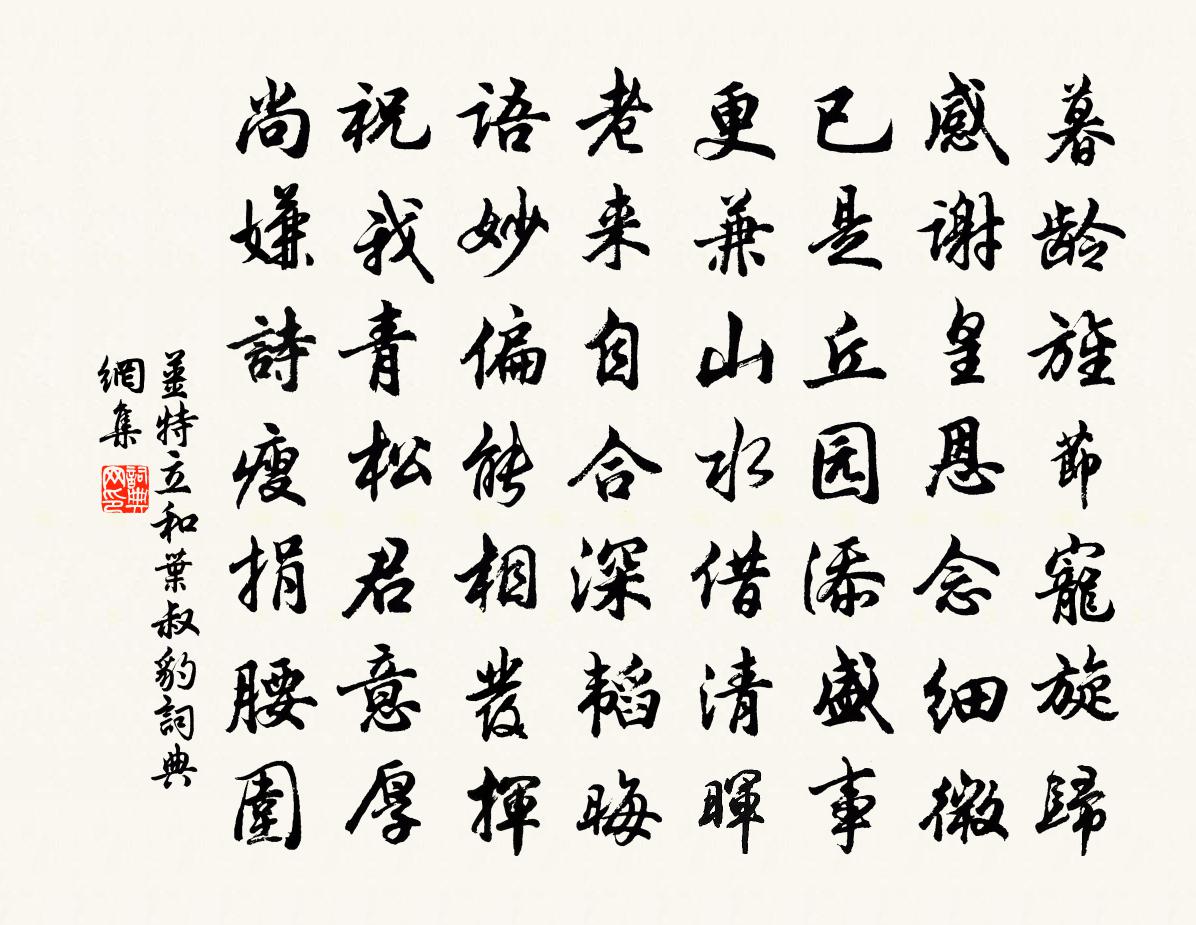 暮龄旌節寵旋歸
感謝皇恩念细微
已是丘园添盛事
更兼山水借清暉
老来自合深韬晦
语妙偏能相發揮
祝我青松君意厚
尚嫌詩瘦捐腰圍
姜特立和葉叔豹詞典
網集
詞典
网印